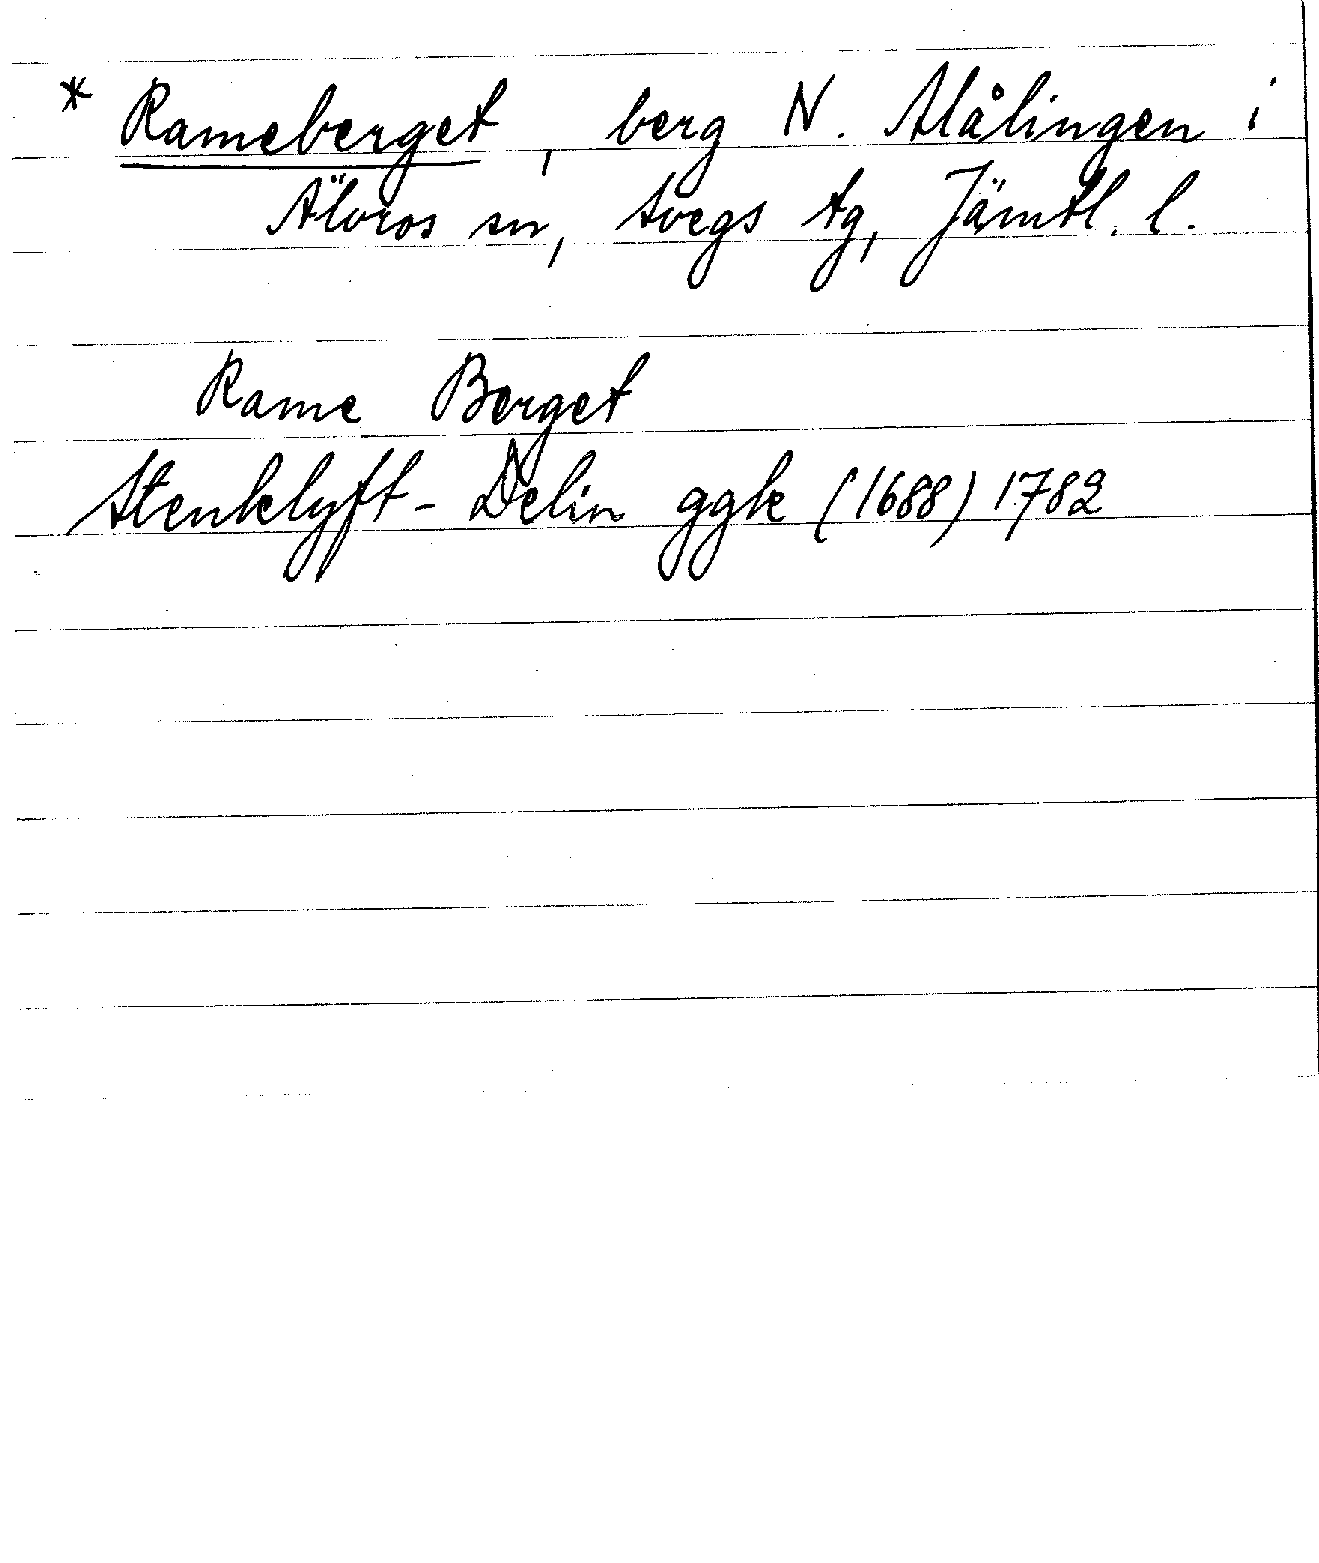 * Rameberget, berg N. Målingen i
Älvros sn, Svegs tg, Jämtl. l.
Rame Berget
Stenklyft - Delin ggk (1688) 1782